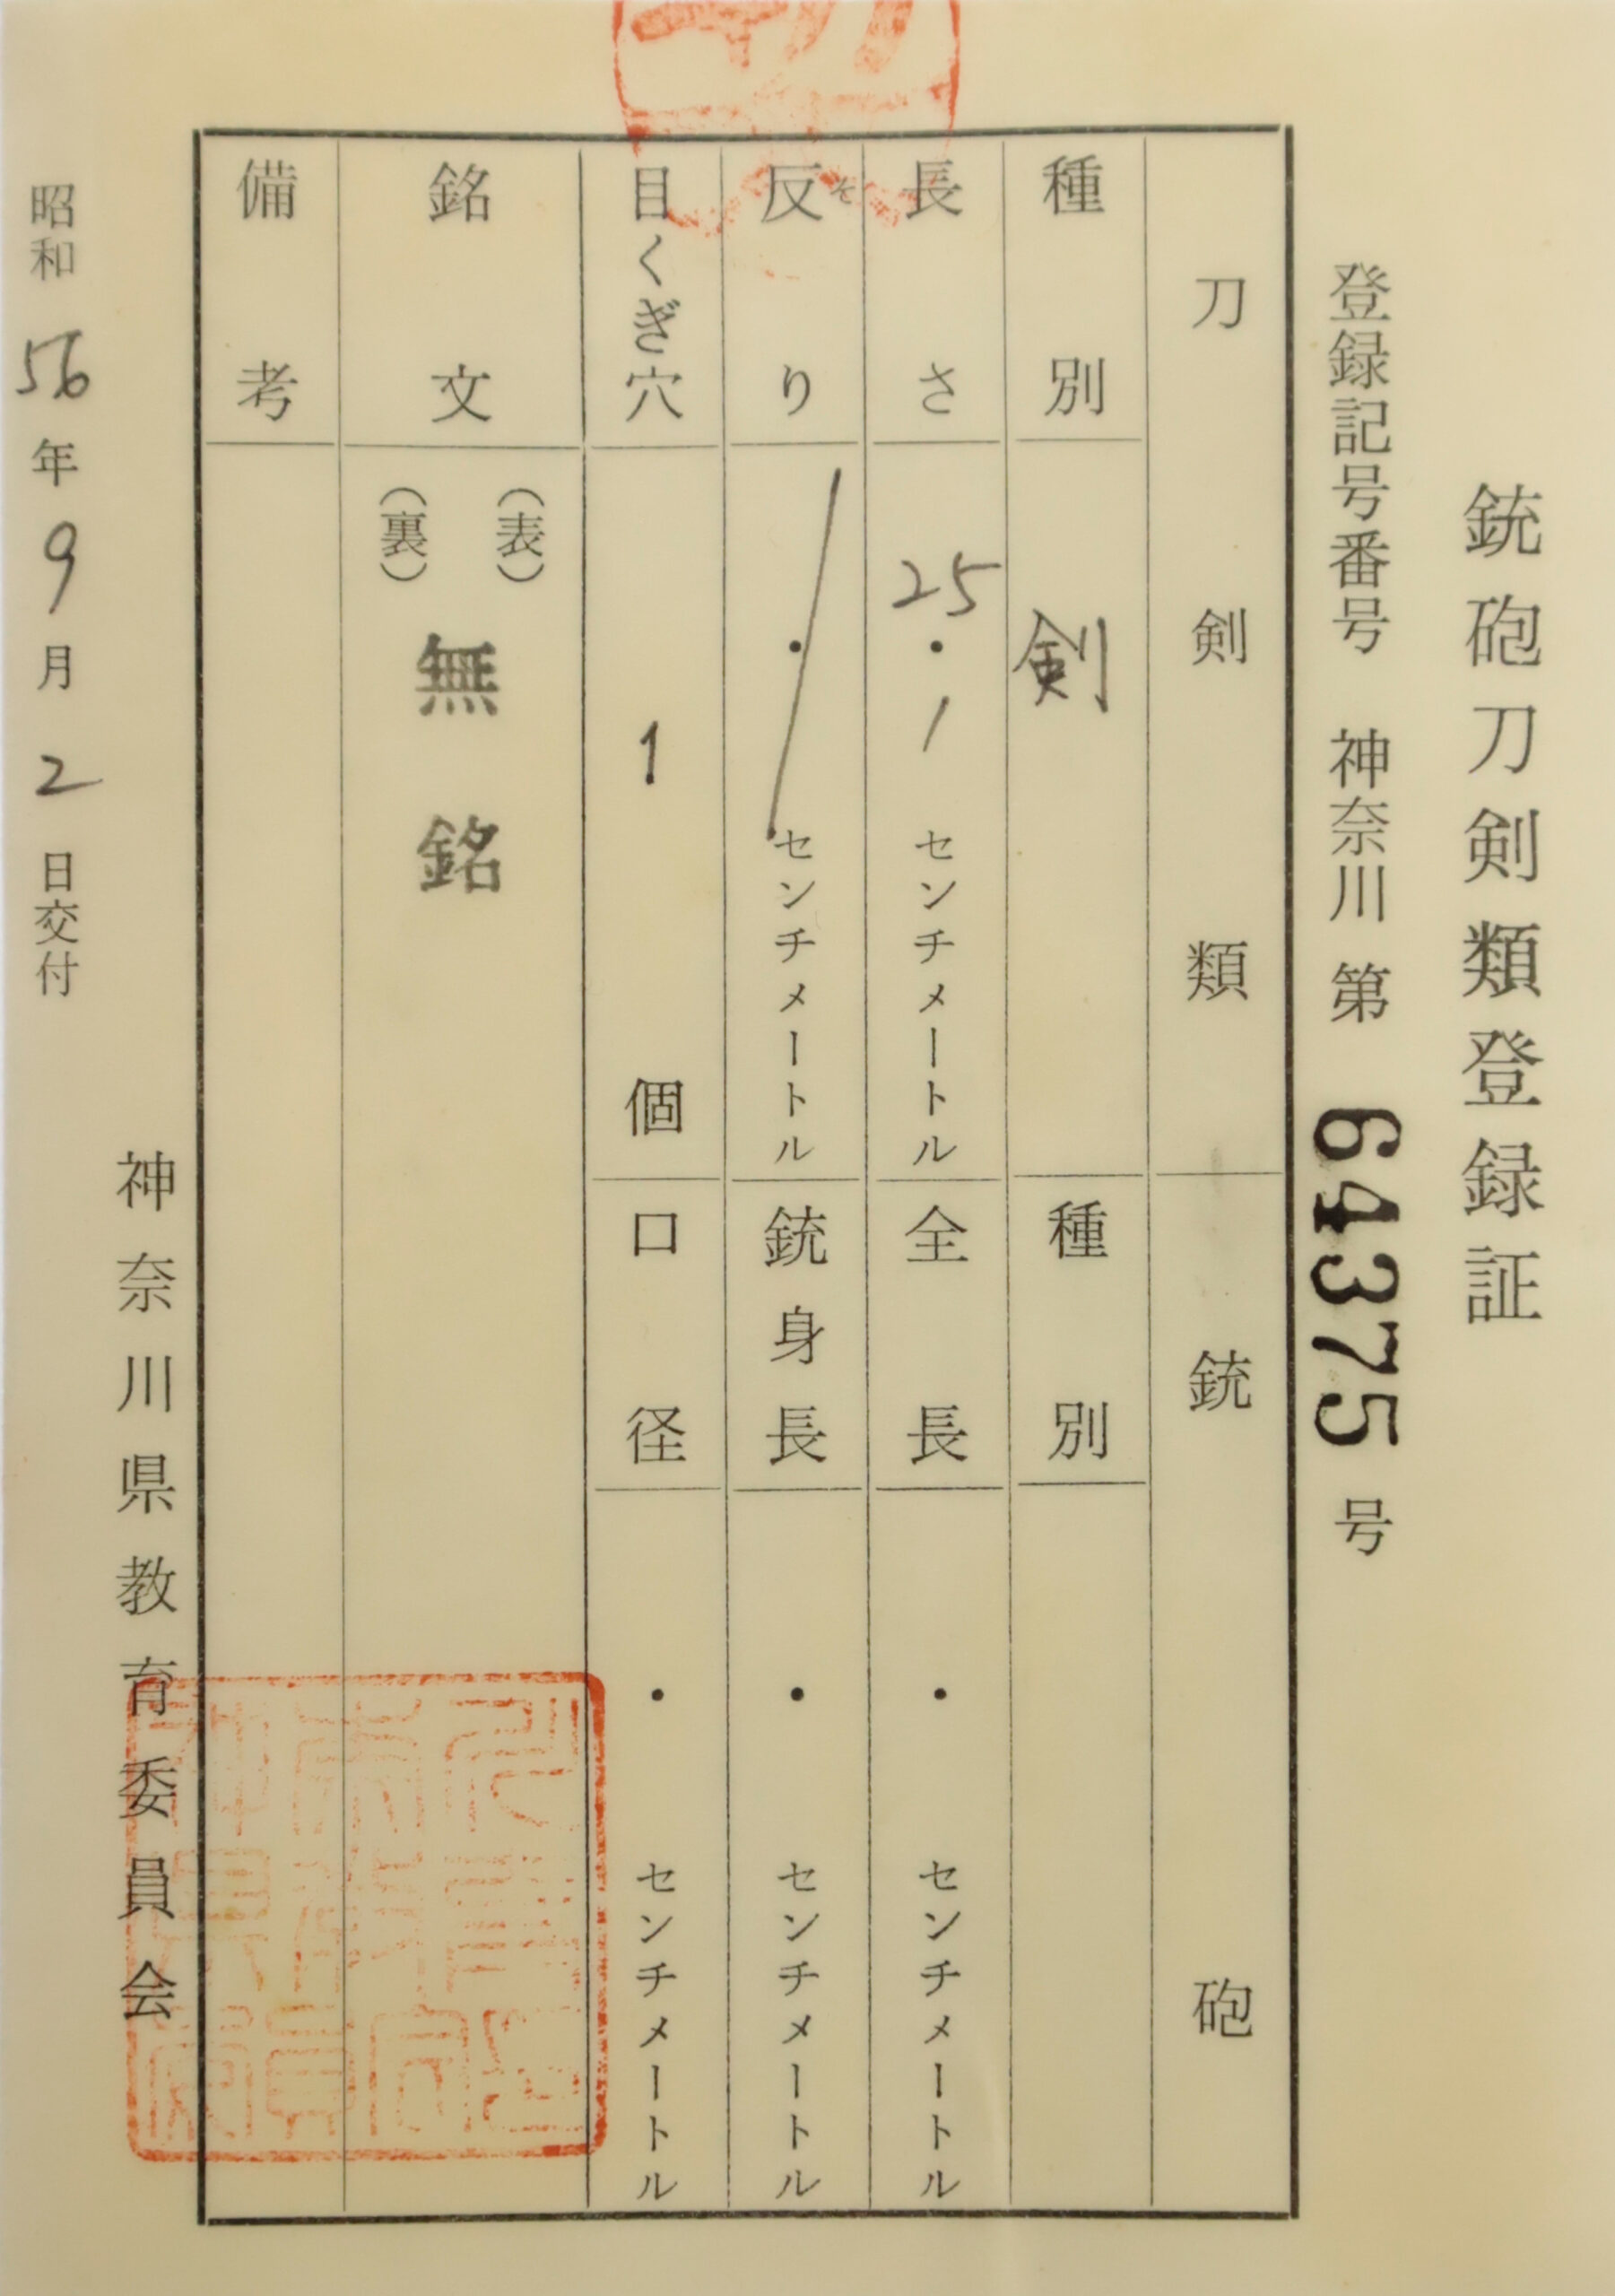 銃砲刀剣類登録証
登録記号番号 神奈川 第 64375 号
刀剣類
銃砲
種別 剣
種別
長さ 25.1 センチメートル
全長 ・ センチメートル
反り そ ・ センチメートル
銃身長 ・ センチメートル
目くぎ穴 1 個
口径 ・ センチメートル
銘文 (表)
(裏)
無銘
備考
神奈川県教育委員会
昭和 56 年 9 月 2 日交付